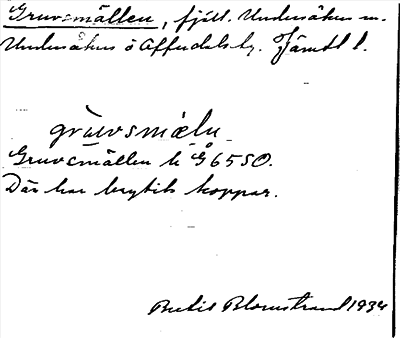 Gruvsmällen, fjäll. Undersåkers sn.
Undersåkers o Offerdals tg. Jämtl l.
gruvsmæln
Gruvsmällen k Å 65 SO.
Där har brytits koppar.
Bertil Blomstrand 1934